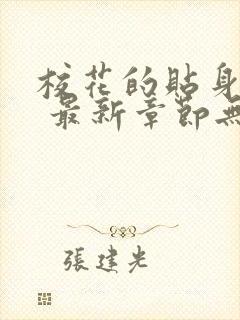 校花的貼身
最新章節無
張建光